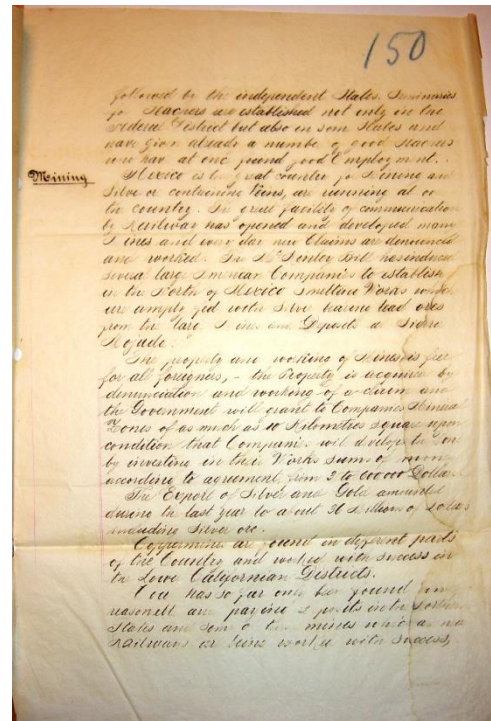 150
followed by the independent States. Seminaries
for Teachers are established not only in the
Federal District but also in som States and
have given already a number of good teachers
who have at one found good Employment.
Mining
Mexico is the great country for Mining and
Silver or containing Veins, are running all over
the country. The great facility of communication
by Railway has opened and developed many
Mines and every day new Claims are denounced
and worked. The Mc Bill has induced
several large American Companies to establish
in the North of Mexico Smelting Works which
are amply fed with Silver bearing lead ores
from the large Mines and Deposits at Sierra
Mojada.
The property and working of Mines is free
for all foreigners, - the Property is acquired by
denunciation and working of a claim and
the Government will grant to Companies Mineral
Zones of as much as 10 Kilometres square upon
condition that Companies will develope the Zone
by investing in their Works sum of money
according to agreement, from 2 to Dollars
The Export of Silver and Gold amounted
during the last year to about Million of Dollars
including Silver ore.
Coppermines are found in different parts
of the Country and worked with success in
the Lower Californian Districts.
has so far only been found in
are points in the Northern
States and some of the mines
Railways are being worked with success,